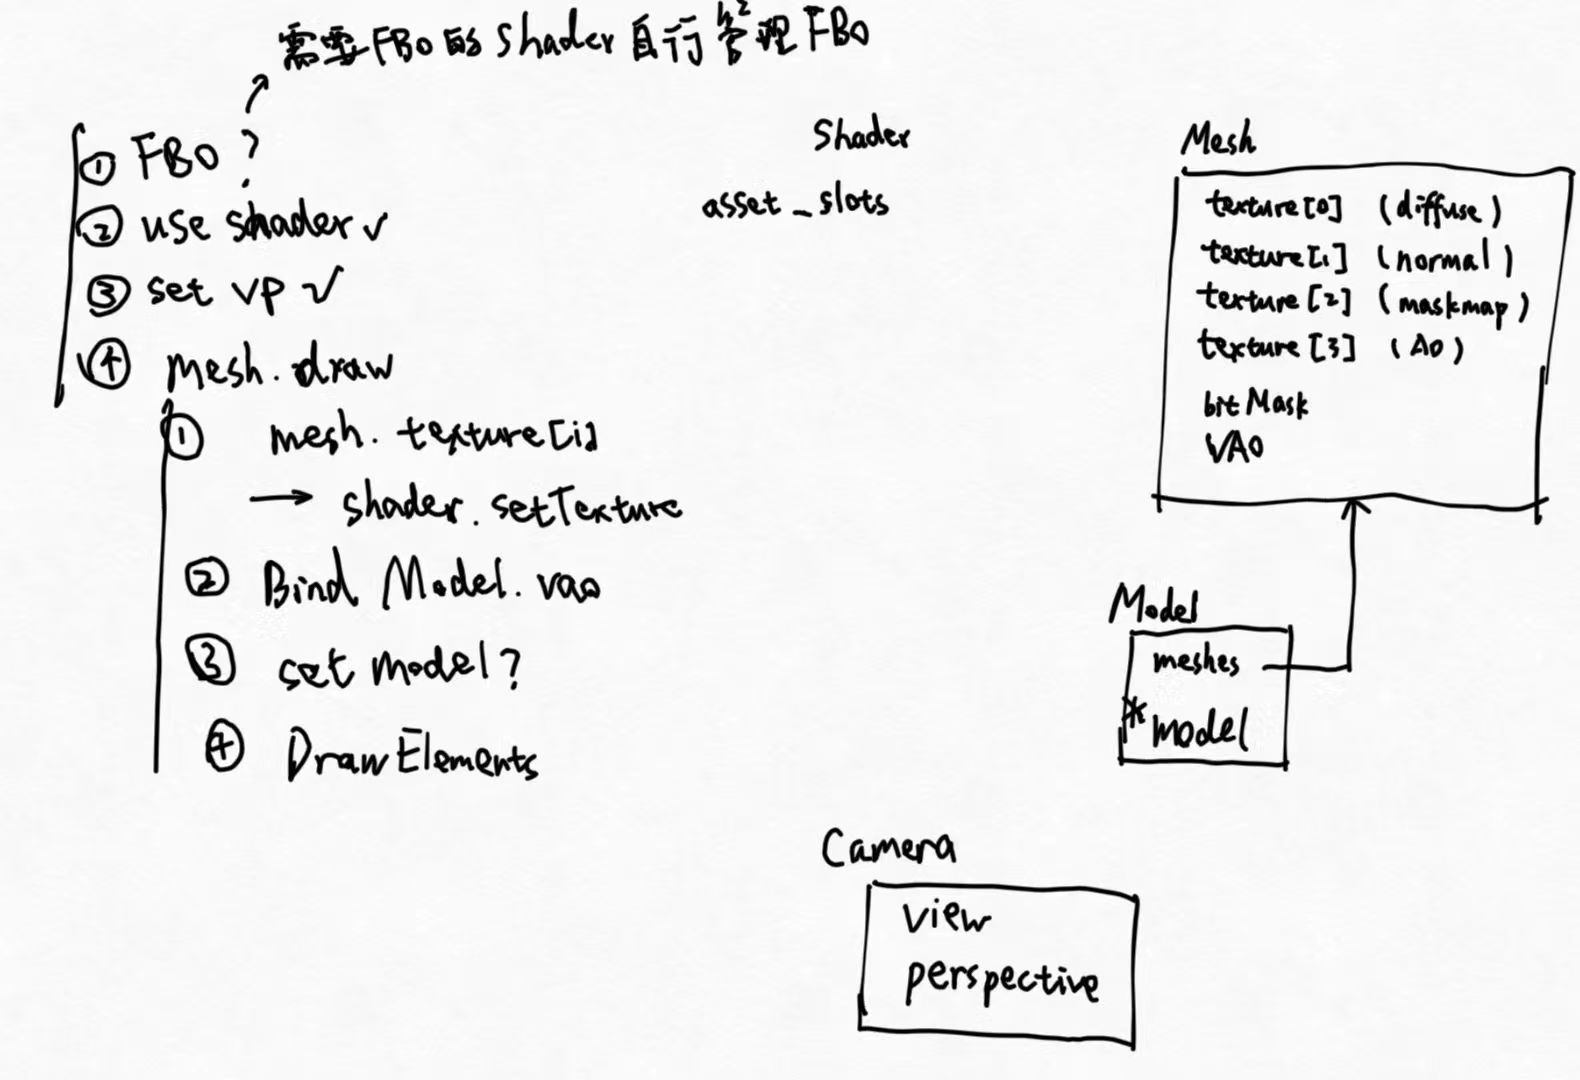 需要FBO的Shader自行管理FBO
① FBO ?
② use shader ✓
③ set vp ✓
④ mesh.draw
① mesh.texture[i]
→ shader.setTexture
② Bind Model.vao
③ set model?
④ DrawElements
Shader
asset_slots
Mesh
texture[0] (diffuse)
texture[1] (normal)
texture[2] (maskmap)
texture[3] (AO)
bitMask
VAO
Model
meshes
* model
Camera
view
perspective